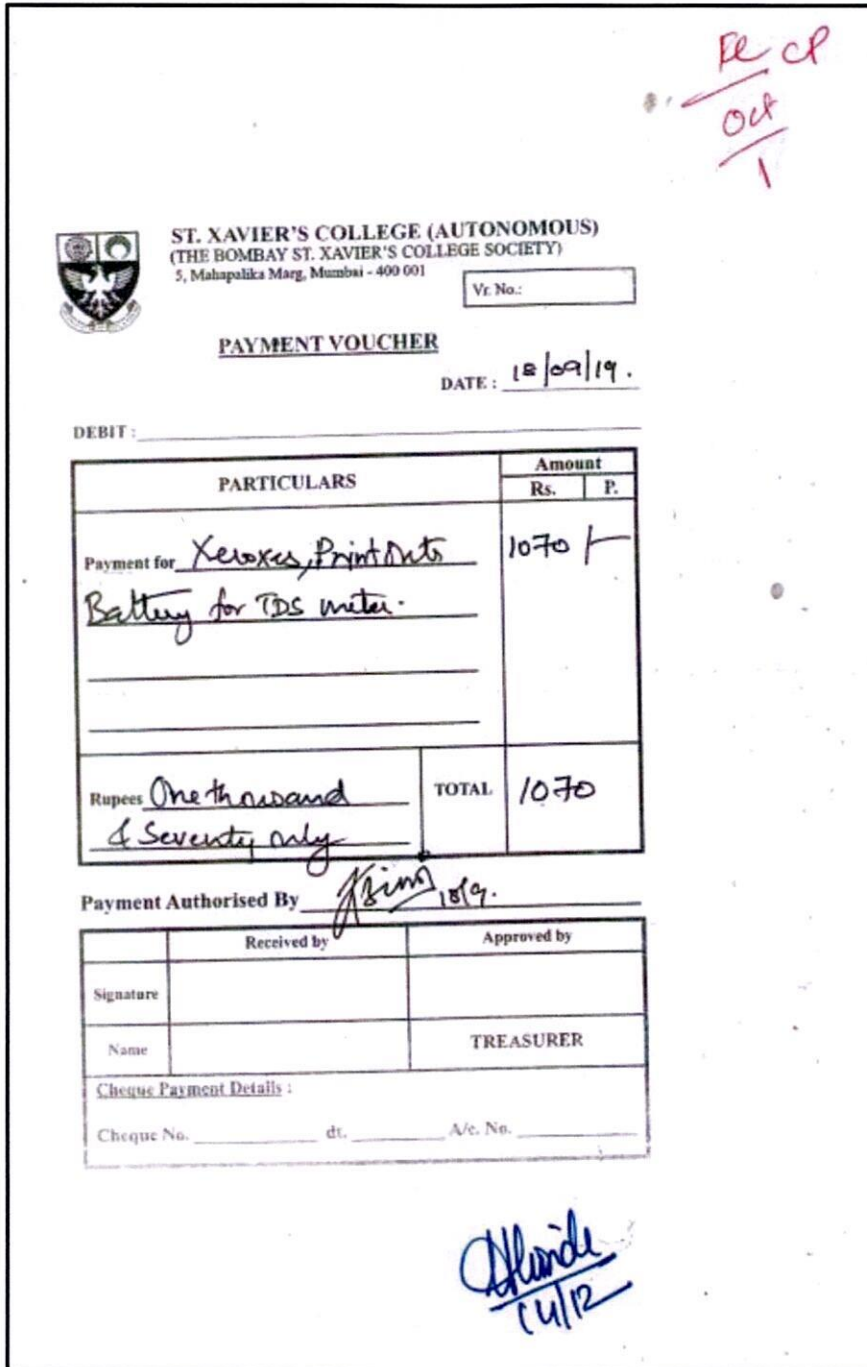 CP
Oct
1
ST. XAVIER'S COLLEGE (AUTONOMOUS)
(THE BOMBAY ST. XAVIER'S COLLEGE SOCIETY)
5, Mahapalika Marg, Mumbai - 400 001
Vr. No.:
PAYMENT VOUCHER
DATE : 18/09/19.
DEBIT :
PARTICULARS Amount
Rs. P.
Payment for Xeroxes, Printouts 1070/-
Battery for TDS meter.
Rupees One thousand TOTAL 1070
& Seventy only
Payment Authorised By 18/9.
Received by Approved by
Signature
Name TREASURER
Cheque Payment Details :
Cheque No. dt. A/c. No.
14/12